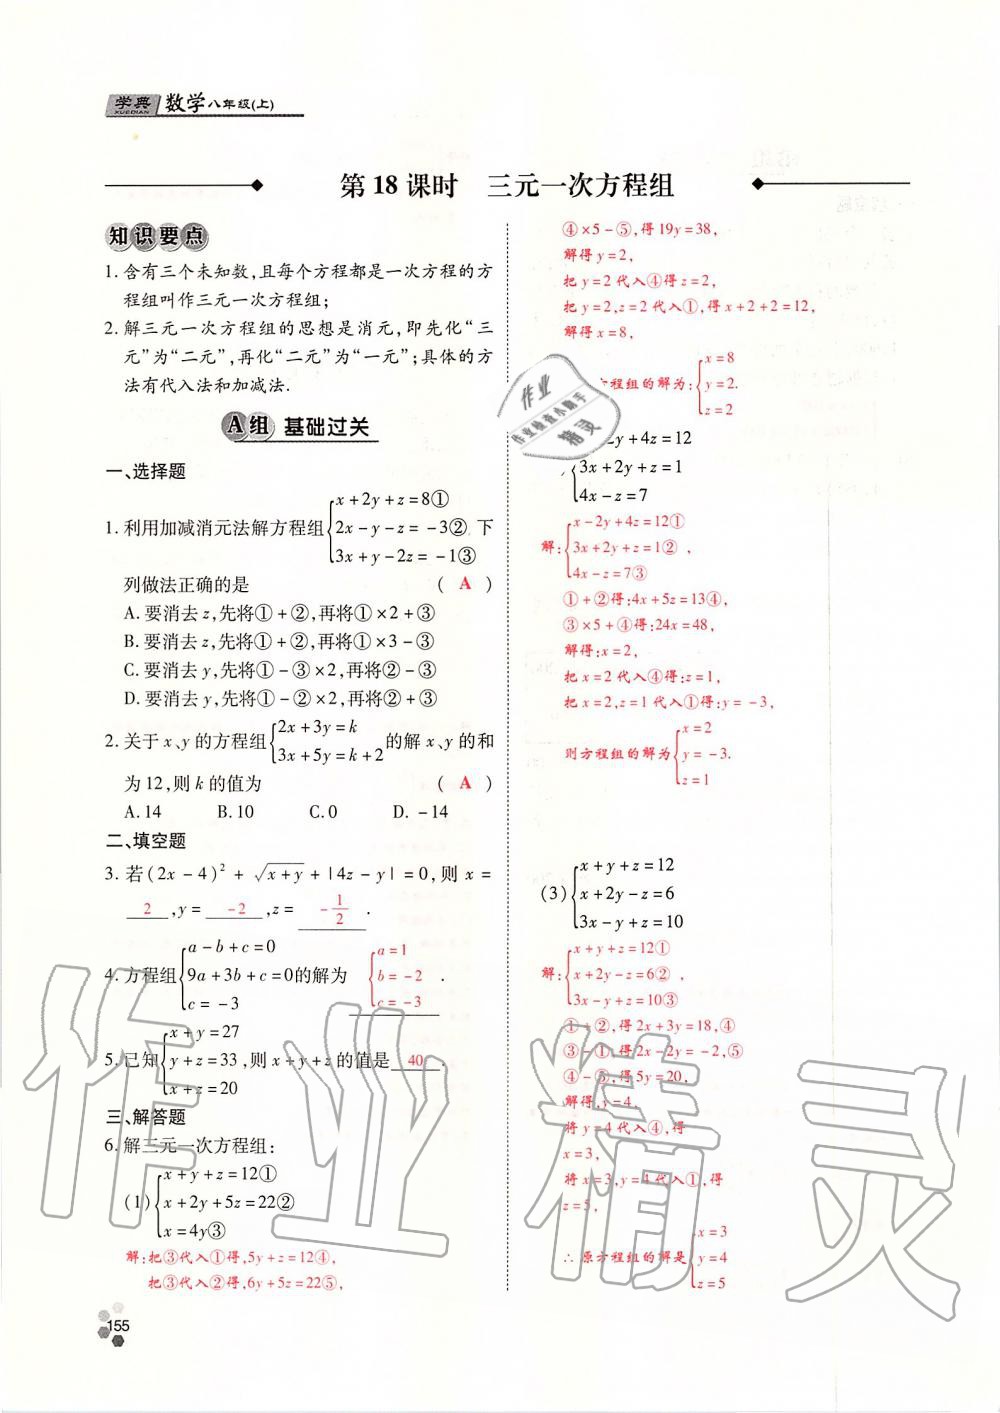 学典 数学八年级(上)
XUEDIAN
第18课时 三元一次方程组
知识要点
1. 含有三个未知数,且每个方程都是一次方程的方
程组叫作三元一次方程组;
2. 解三元一次方程组的思想是消元,即先化“三
元”为“二元”,再化“二元”为“一元”;具体的方
法有代入法和加减法.
A组 基础过关
一、选择题
x+2y+z=8①
1. 利用加减消元法解方程组 2x-y-z=-3②, 下
3x+y-2z=-1③
列做法正确的是 ( A )
A. 要消去z,先将①+②,再将①×2+③
B. 要消去z,先将①+②,再将①×3-③
C. 要消去y,先将①-③×2,再将②-③
D. 要消去y,先将①-②×2,再将②+③
2x+3y=k
2. 关于x、y的方程组 的解x、y的和
3x+5y=k+2
为12,则k的值为 ( A )
A. 14 B. 10 C. 0 D. -14
二、填空题
3. 若(2x-4)²+√x+y+|4z-y|=0,则x=
2 ,y= -2 ,z= -1/2 .
a-b+c=0 a=1
4. 方程组 9a+3b+c=0 的解为 b=-2 .
c=-3 c=-3
x+y=27
5. 已知 y+z=33 ,则x+y+z的值是 40 .
x+z=20
三、解答题
6. 解三元一次方程组:
x+y+z=12①
(1) x+2y+5z=22②
x=4y③
解:把③代入①得,5y+z=12④,
把③代入②得,6y+5z=22⑤,
155
④×5-⑤,得19y=38,
解得y=2,
把y=2代入④得z=2,
把y=2,z=2代入①,得x+2+2=12,
解得x=8,
x=8
方程组的解为: y=2.
z=2
2y+4z=12
3x+2y+z=1
4x-z=7
x-2y+4z=12①
解: 3x+2y+z=1② ,
4x-z=7③
①+②得:4x+5z=13④,
③×5+④得:24x=48,
解得:x=2,
把x=2代入④得:z=1,
把x=2,z=1代入①得:y=-3,
x=2
则方程组的解为 y=-3.
z=1
x+y+z=12
(3) x+2y-z=6
3x-y+z=10
x+y+z=12①
解: x+2y-z=6② ,
3x-y+z=10③
①+②,得2x+3y=18,④
③-①,得2x-2y=-2,⑤
④-⑤,得5y=20,
解得,y=4,
将y=4代入④,得
x=3,
将x=3,y=4代入①,得
z=5,
x=3
∴原方程组的解是 y=4
z=5
作业
作业检查小助手
精灵
作业精灵